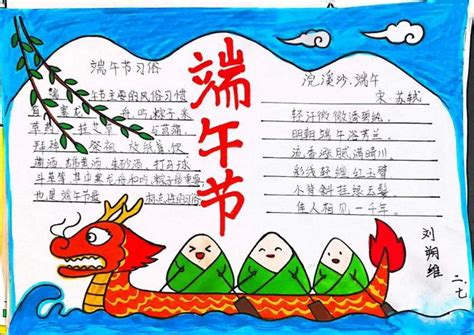 端午节习俗
端午节主要的风俗习惯
有：赛龙舟、吃粽子、采
草药、挂艾草与菖蒲、
拜神祭祖、放纸鸢、饮
雄黄酒、打马球、
斗草等。其中赛龙舟和吃粽子最重要，
也是端午节最
端午节
浣溪沙·端午
宋·苏轼
轻汗微微透碧纨，
明朝端午浴芳兰。
流香涨腻满晴川。
彩线轻缠红玉臂，
小符斜挂绿云鬟。
佳人相见一千年。
刘翊维
二七